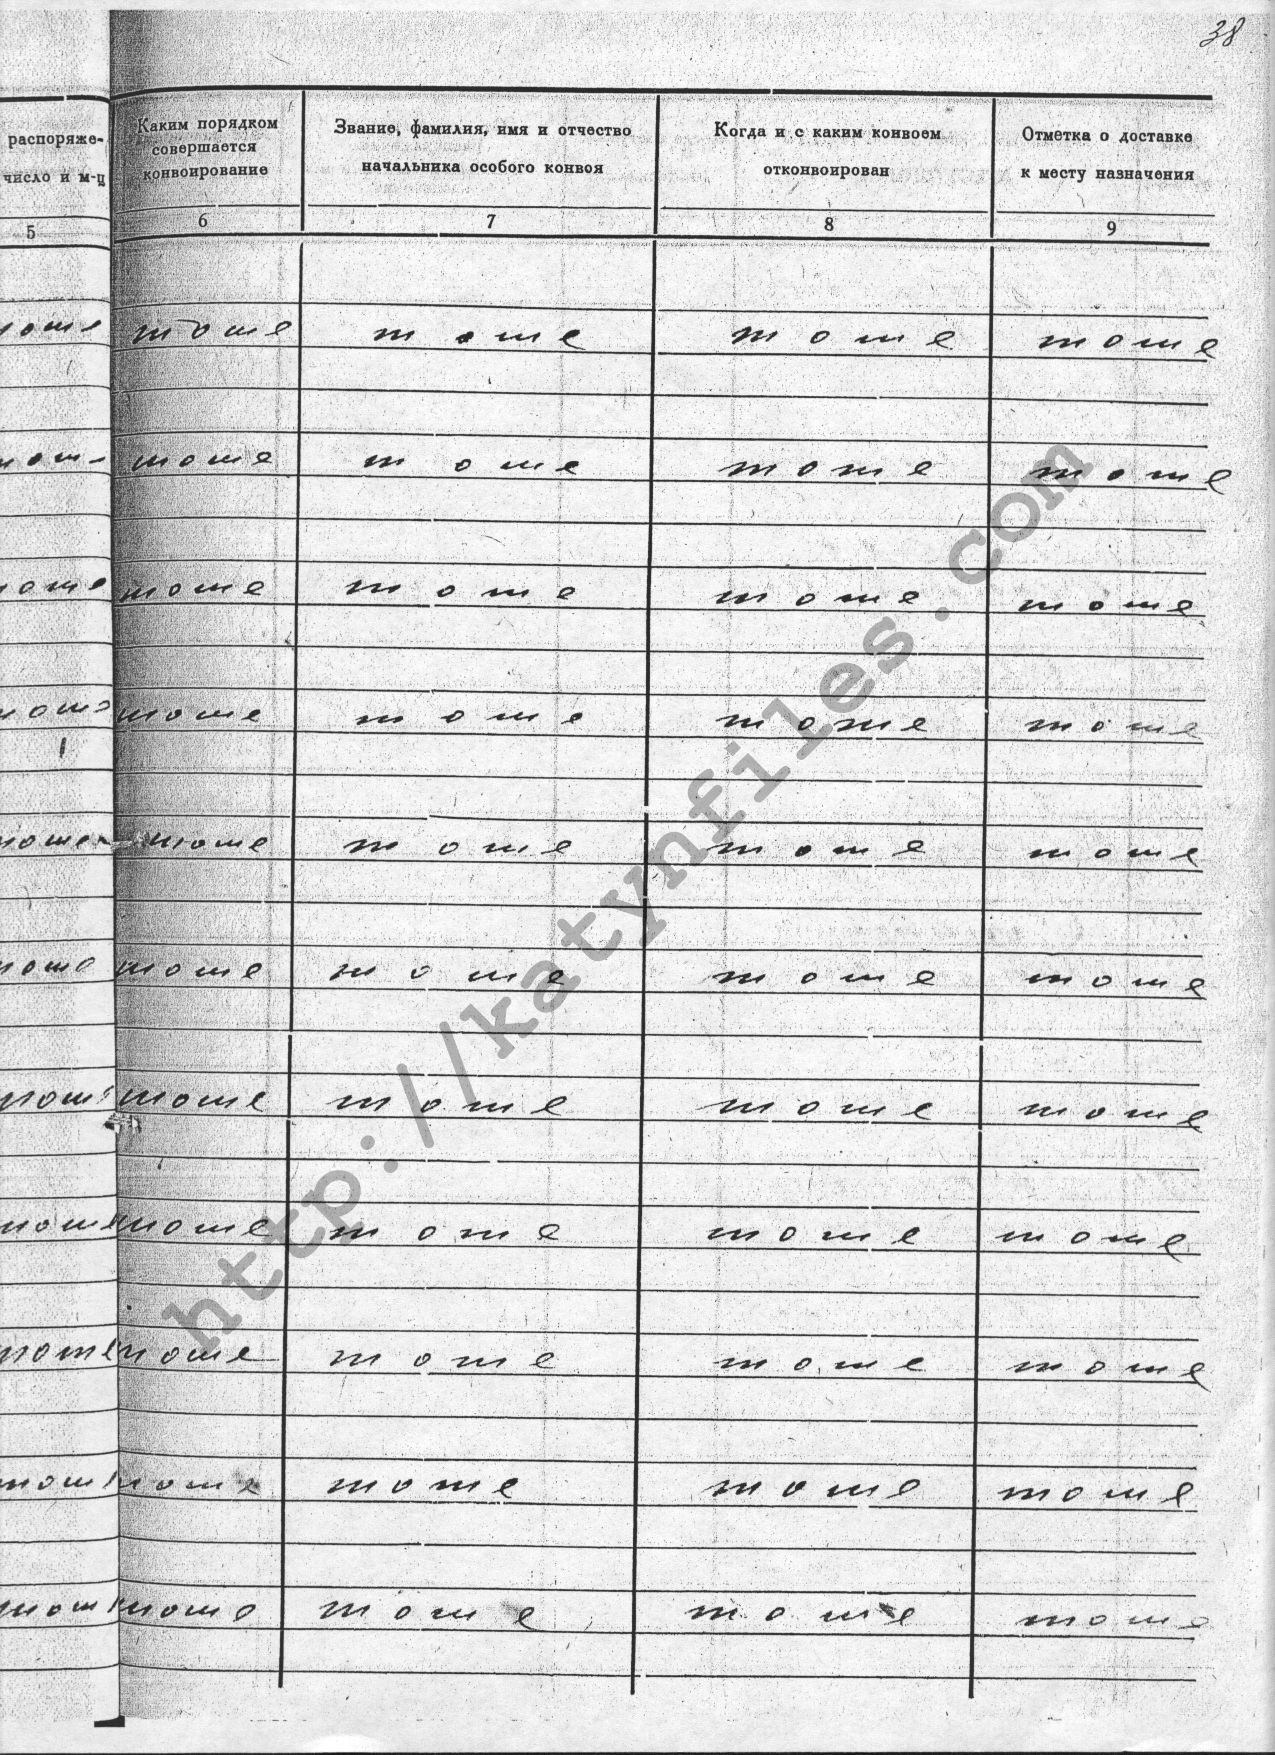 38
распоряже-
число и м-ц
Каким порядком
совершается
конвоирование
Звание, фамилия, имя и отчество
начальника особого конвоя
Когда и с каким конвоем
отконвоирован
Отметка о доставке
к месту назначения
5 6 7 8 9
тоже тоже тоже тоже тоже
тоже тоже тоже тоже тоже
тоже тоже тоже тоже тоже
тоже тоже тоже тоже тоже
тоже тоже тоже тоже тоже
тоже тоже тоже тоже тоже
тоже тоже тоже тоже тоже
тоже тоже тоже тоже тоже
тоже тоже тоже тоже тоже
тоже тоже тоже тоже тоже
тоже тоже тоже тоже тоже
http://katynfiles.com